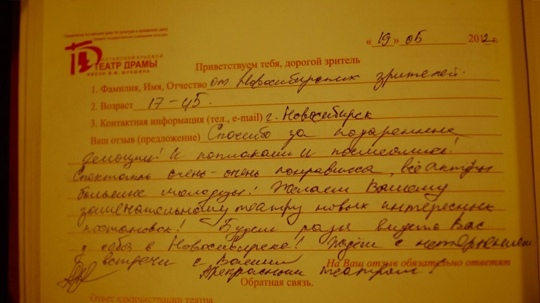 АЛТАЙСКИЙ КРАЕВОЙ
ТЕАТР ДРАМЫ
ИМЕНИ В.М. ШУКШИНА
« 19 » 05 2012 г.
Приветствуем тебя, дорогой зритель
1. Фамилия, Имя, Отчество от Новосибирских зрителей.
2. Возраст 17-45.
3. Контактная информация (тел., e-mail) г. Новосибирск
Ваш отзыв (предложение) Спасибо за подаренные
эмоции! И поплакали и посмеялись!
Спектакль очень-очень понравился, все актёры
большие молодцы! Желаем Вашему
замечательному театру новых интересных
постановок! Будем рады видеть Вас
у себя в Новосибирске! Ждём с нетерпением
встречи с Вашим
Прекрасным театром!
На Ваш отзыв обязательно ответят
Обратная связь.
Ответ администрации театра